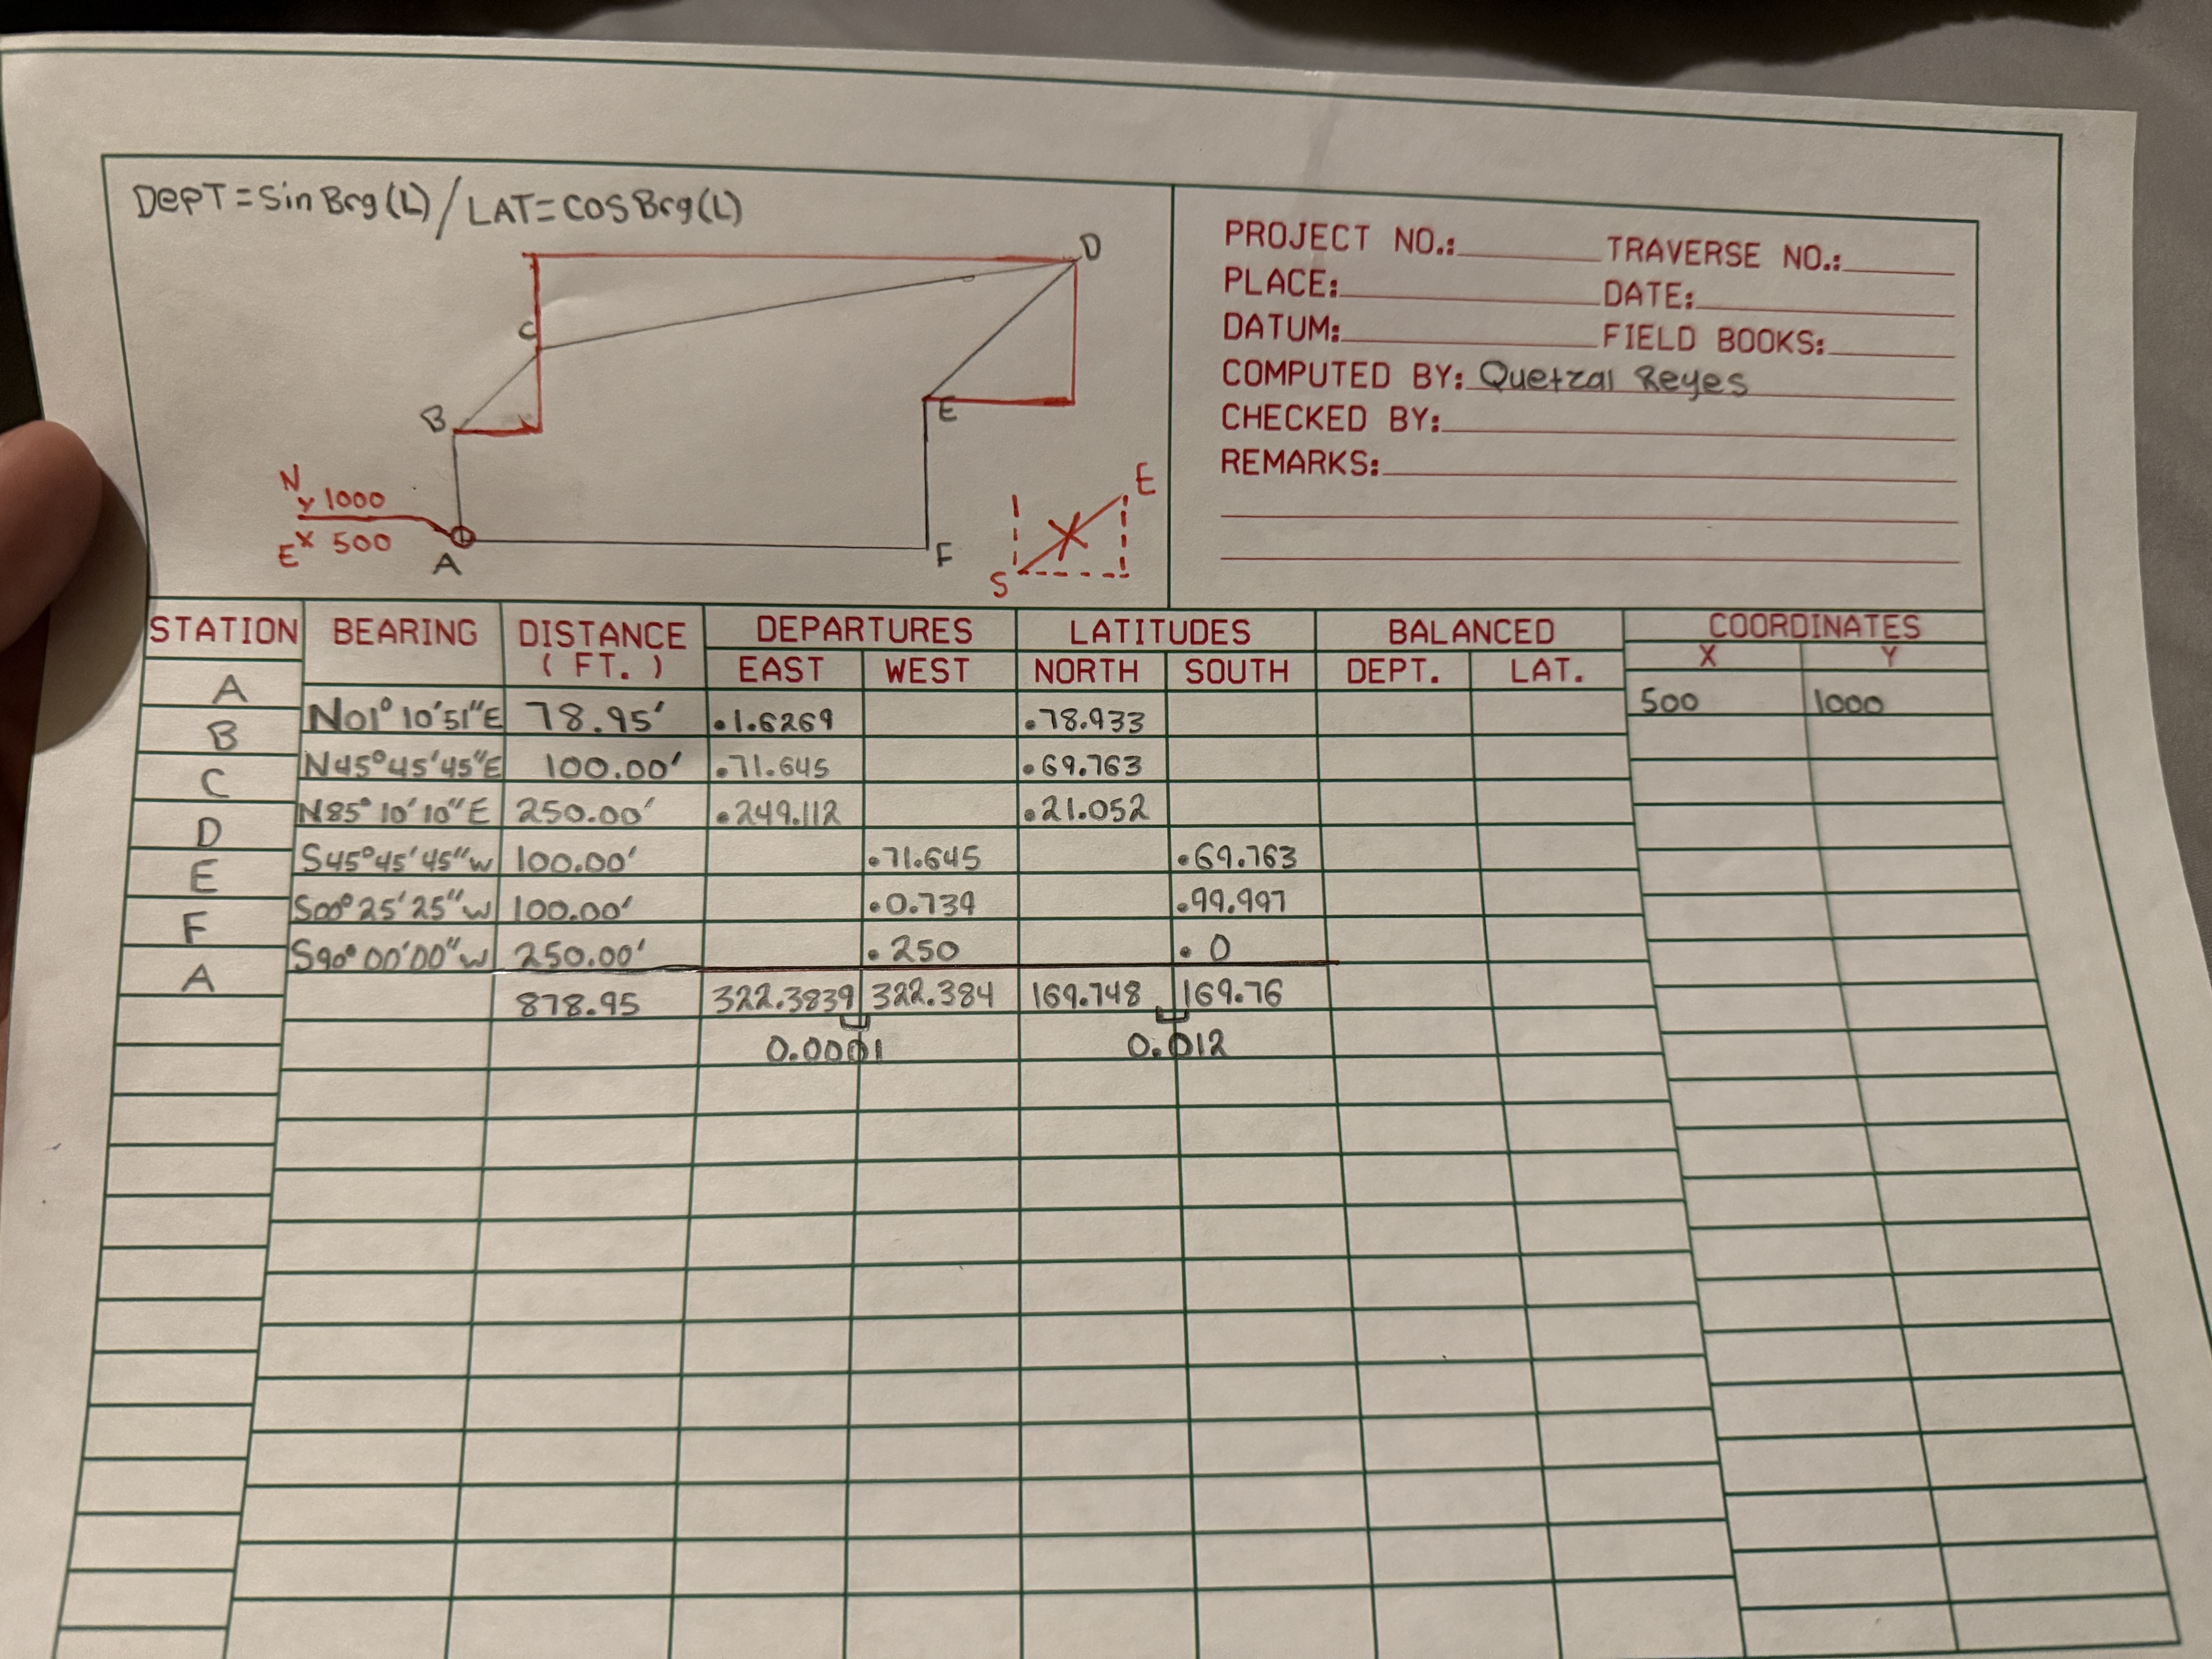 DEPT = Sin Brg (L) / LAT = COS Brg (L)
D
C
B
E
N
Y 1000
E X 500
A
F
E
S
PROJECT NO.: TRAVERSE NO.:
PLACE: DATE:
DATUM: FIELD BOOKS:
COMPUTED BY: Quetzal Reyes
CHECKED BY:
REMARKS:
STATION BEARING DISTANCE (FT.) DEPARTURES LATITUDES BALANCED COORDINATES
EAST WEST NORTH SOUTH DEPT. LAT. X Y
A 500 1000
N01° 10' 51" E 78.95' .1.6269 .78.933
B
N45° 45' 45" E 100.00' .71.645 .69.763
C
N85° 10' 10" E 250.00' .249.112 .21.052
D
S45° 45' 45" W 100.00' .71.645 .69.763
E
S00° 25' 25" W 100.00' .0.739 .99.997
F
S90° 00' 00" W 250.00' .250 .0
A
878.95 322.3839 322.384 169.748 169.76
0.0001 0.012